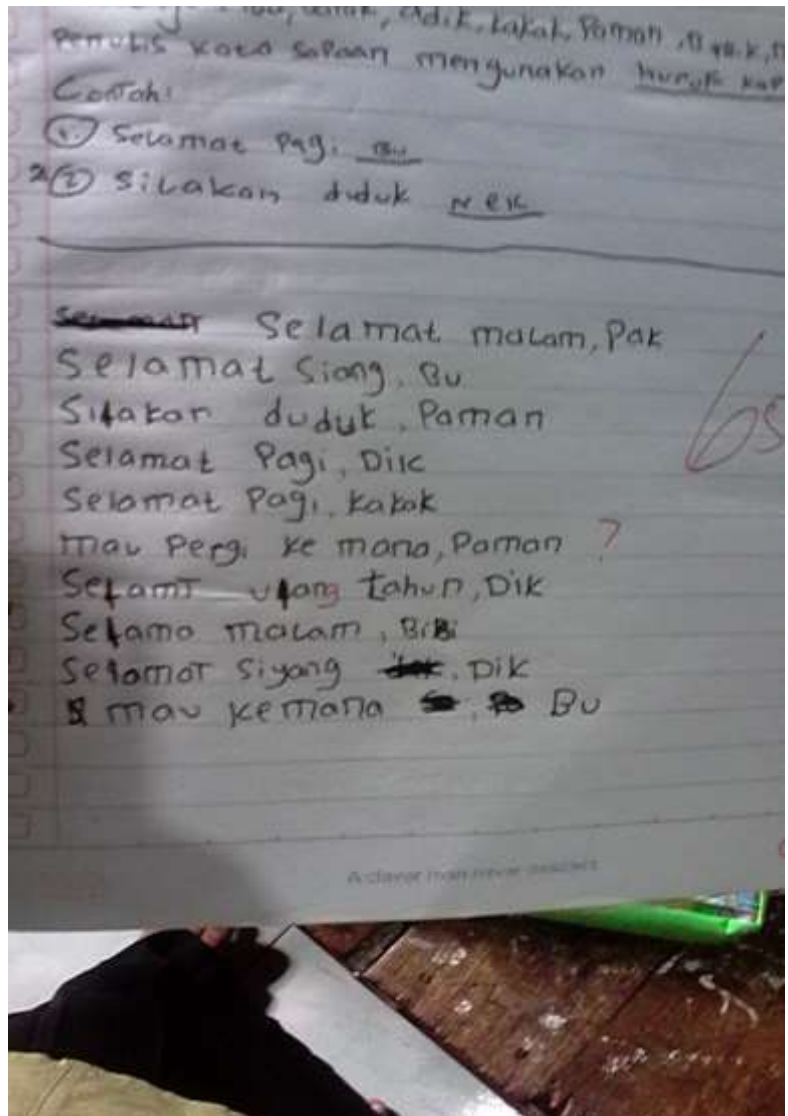 Adik, Kakak, Paman,
Penulis kata sapaan mengunakan huruf
Contoh:
1. Selamat Pagi Bu
2 2 Silakan duduk Nek
Selamat malam, Pak
Selamat Siang, Bu
Silakan duduk, Paman
Selamat Pagi, Dik
Selamat Pagi, Kakak
mau Pergi ke mana, Paman ?
Selamt ulang tahun, Dik
Selama malam, BiBi
Selamat Siyang, Dik
mau kemana, Bu
65